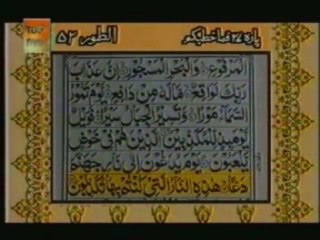 پارہ ۲۷ قال فما خطبکم
الطور ۵۲
الْمَرْفُوْعِ وَالْبَحْرِ الْمَسْجُوْرِ اِنَّ عَذَابَ
رَبِّكَ لَوَاقِعٌ مَّا لَهٗ مِنْ دَافِعٍ يَّوْمَ تَمُوْرُ
السَّمَآءُ مَوْرًا وَّتَسِيْرُ الْجِبَالُ سَيْرًا فَوَيْلٌ
يَّوْمَئِذٍ لِّلْمُكَذِّبِيْنَ الَّذِيْنَ هُمْ فِيْ خَوْضٍ
يَّلْعَبُوْنَ يَوْمَ يُدَعُّوْنَ اِلٰى نَارِ جَهَنَّمَ
دَعًّا هٰذِهِ النَّارُ الَّتِيْ كُنْتُمْ بِهَا تُكَذِّبُوْنَ